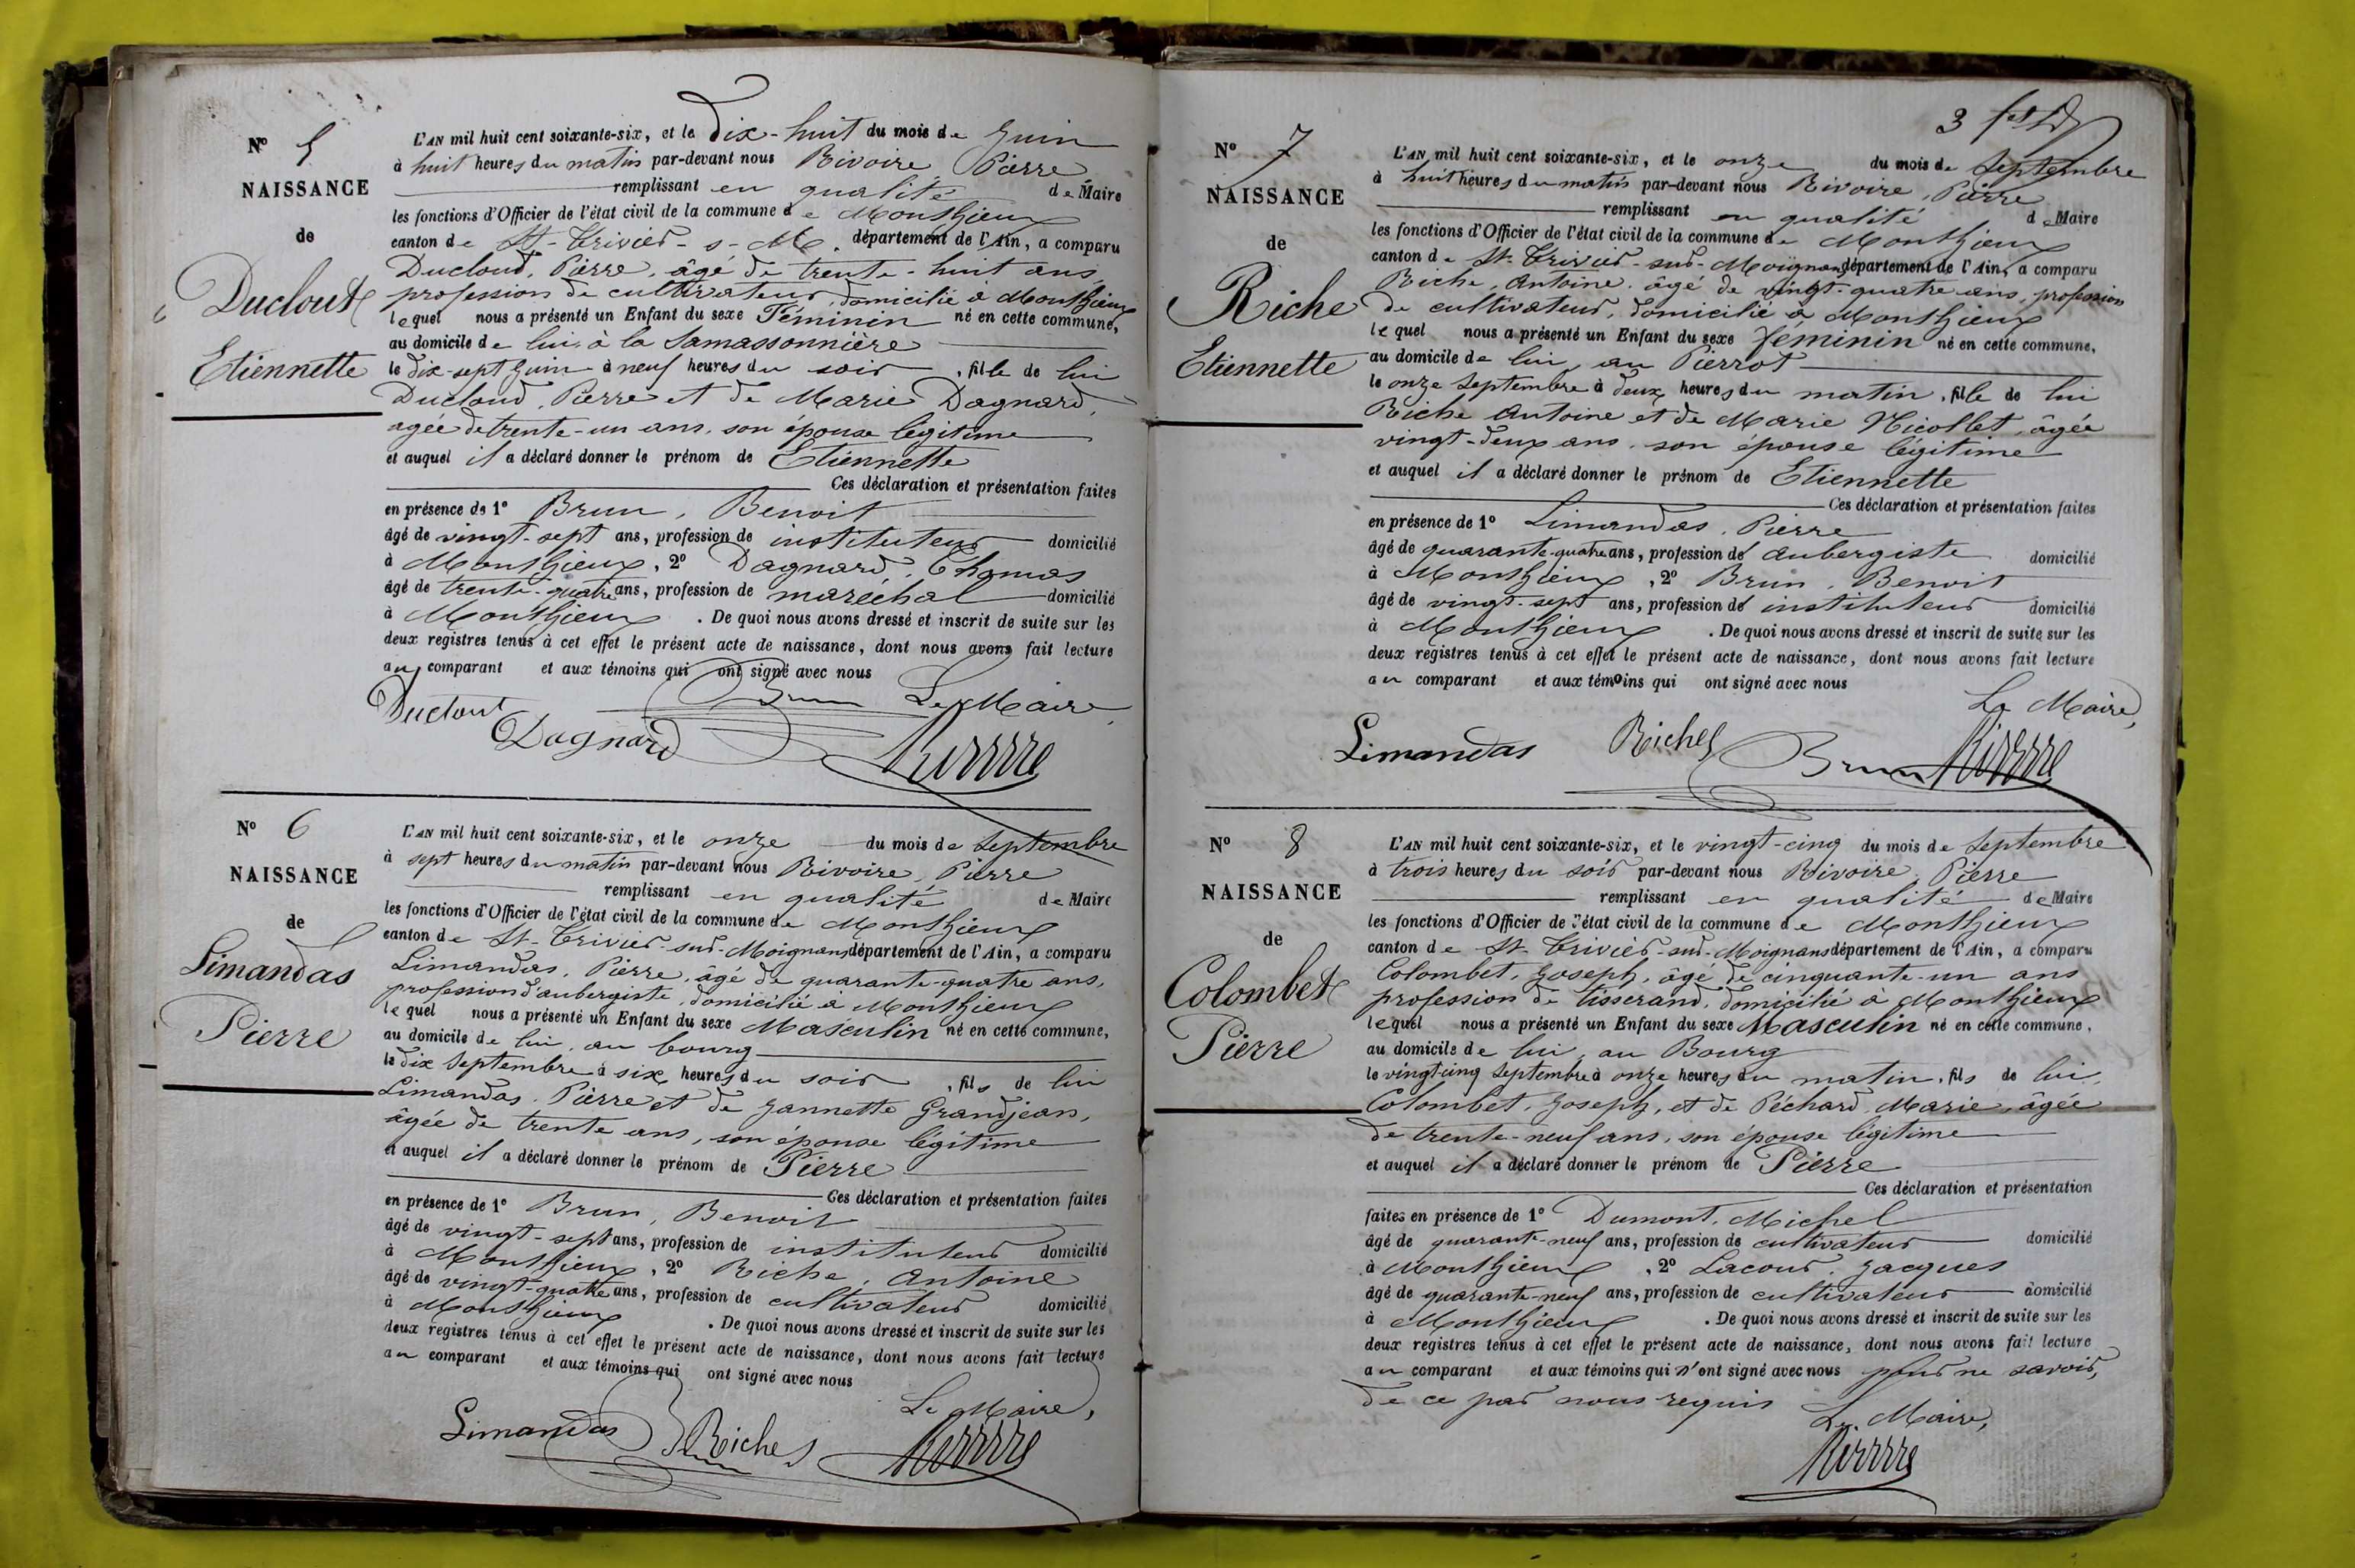 N° 5
NAISSANCE
de
Duclout
Etiennette
L'AN mil huit cent soixante-six, et le Dix-huit du mois de Juin
à huit heures du matin par-devant nous Rivoire, Pierre
remplissant en qualité de Maire
les fonctions d'Officier de l'état civil de la commune de Monthieux
canton de St-Trivier-s-M. département de l'Ain, a comparu
Ducloud, Pierre, âgé de trente-huit ans,
profession de cultivateur, domicilié à Monthieux
lequel nous a présenté un Enfant du sexe Féminin né en cette commune,
au domicile de lui, à la Samassonnière
le dix-sept Juin à neuf heures du soir, fille de lui
Ducloud, Pierre et de Marie Dagnard,
agée de trente-un ans, son épouse légitime
et auquel il a déclaré donner le prénom de Etiennette
Ces déclaration et présentation faites
en présence de 1° Brun, Benoit
âgé de vingt-sept ans, profession de instituteur domicilié
à Monthieux, 2° Dagnard, Thomas
âgé de trente-quatre ans, profession de maréchal domicilié
à Monthieux. De quoi nous avons dressé et inscrit de suite sur les
deux registres tenus à cet effet le présent acte de naissance, dont nous avons fait lecture
au comparant et aux témoins qui ont signé avec nous
Duclout Brun Le Maire,
Dagnard
N° 6
NAISSANCE
de
Limandas
Pierre
L'AN mil huit cent soixante-six, et le onze du mois de Septembre
à sept heures du matin par-devant nous Rivoire, Pierre
remplissant en qualité de Maire
les fonctions d'Officier de l'état civil de la commune de Monthieux
canton de St-Trivier-sur-Moignans département de l'Ain, a comparu
Limandas, Pierre, âgé de quarante-quatre ans,
profession d'aubergiste, domicilié à Monthieux
lequel nous a présenté un Enfant du sexe Masculin né en cette commune,
au domicile de lui, au bourg
le dix Septembre à six heures du soir, fils de lui
Limandas, Pierre et de Jannette Grandjean,
âgée de trente ans, son épouse légitime
et auquel il a déclaré donner le prénom de Pierre
Ces déclaration et présentation faites
en présence de 1° Brun, Benoit
âgé de vingt-sept ans, profession de instituteur domicilié
à Monthieux, 2° Riche, Antoine
âgé de vingt-quatre ans, profession de cultivateur domicilié
à Monthieux. De quoi nous avons dressé et inscrit de suite sur les
deux registres tenus à cet effet le présent acte de naissance, dont nous avons fait lecture
au comparant et aux témoins qui ont signé avec nous
Le Maire,
Limandas Brun Riche
3
N° 7
NAISSANCE
de
Riche
Etiennette
L'AN mil huit cent soixante-six, et le onze du mois de Septembre
à huit heures du matin par-devant nous Rivoire, Pierre
remplissant en qualité de Maire
les fonctions d'Officier de l'état civil de la commune de Monthieux
canton de St-Trivier-sur-Moignans département de l'Ain, a comparu
Riche, Antoine, âgé de vingt-quatre ans, profession
de cultivateur, domicilié à Monthieux
lequel nous a présenté un Enfant du sexe féminin né en cette commune,
au domicile de lui, au Pierrot
le onze Septembre à deux heures du matin, fille de lui
Riche Antoine et de Marie Nicollet, âgée
vingt-deux ans, son épouse légitime
et auquel il a déclaré donner le prénom de Etiennette
Ces déclaration et présentation faites
en présence de 1° Limandas, Pierre
âgé de quarante-quatre ans, profession d'aubergiste domicilié
à Monthieux, 2° Brun, Benoit
âgé de vingt-sept ans, profession d'instituteur domicilié
à Monthieux. De quoi nous avons dressé et inscrit de suite sur les
deux registres tenus à cet effet le présent acte de naissance, dont nous avons fait lecture
au comparant et aux témoins qui ont signé avec nous
Le Maire,
Limandas Riche Brun
N° 8
NAISSANCE
de
Colombet
Pierre
L'AN mil huit cent soixante-six, et le vingt-cinq du mois de Septembre
à trois heures du soir par-devant nous Rivoire, Pierre
remplissant en qualité de Maire
les fonctions d'Officier de l'état civil de la commune de Monthieux
canton de St-Trivier-sur-Moignans département de l'Ain, a comparu
Colombet, Joseph, âgé de cinquante-un ans
profession de tisserand, domicilié à Monthieux
lequel nous a présenté un Enfant du sexe Masculin né en cette commune,
au domicile de lui, au Bourg
le vingt-cinq Septembre à onze heures du matin, fils de lui,
Colombet, Joseph, et de Péchard, Marie, âgée
de trente-neuf ans, son épouse légitime
et auquel il a déclaré donner le prénom de Pierre
Ces déclaration et présentation
faites en présence de 1° Dumont, Michel
âgé de quarante-neuf ans, profession de cultivateur domicilié
à Monthieux, 2° Lacour, Jacques
âgé de quarante-neuf ans, profession de cultivateur domicilié
à Monthieux. De quoi nous avons dressé et inscrit de suite sur les
deux registres tenus à cet effet le présent acte de naissance, dont nous avons fait lecture
au comparant et aux témoins qui n'ont signé avec nous pour ne savoir,
de ce par nous requis
Le Maire,